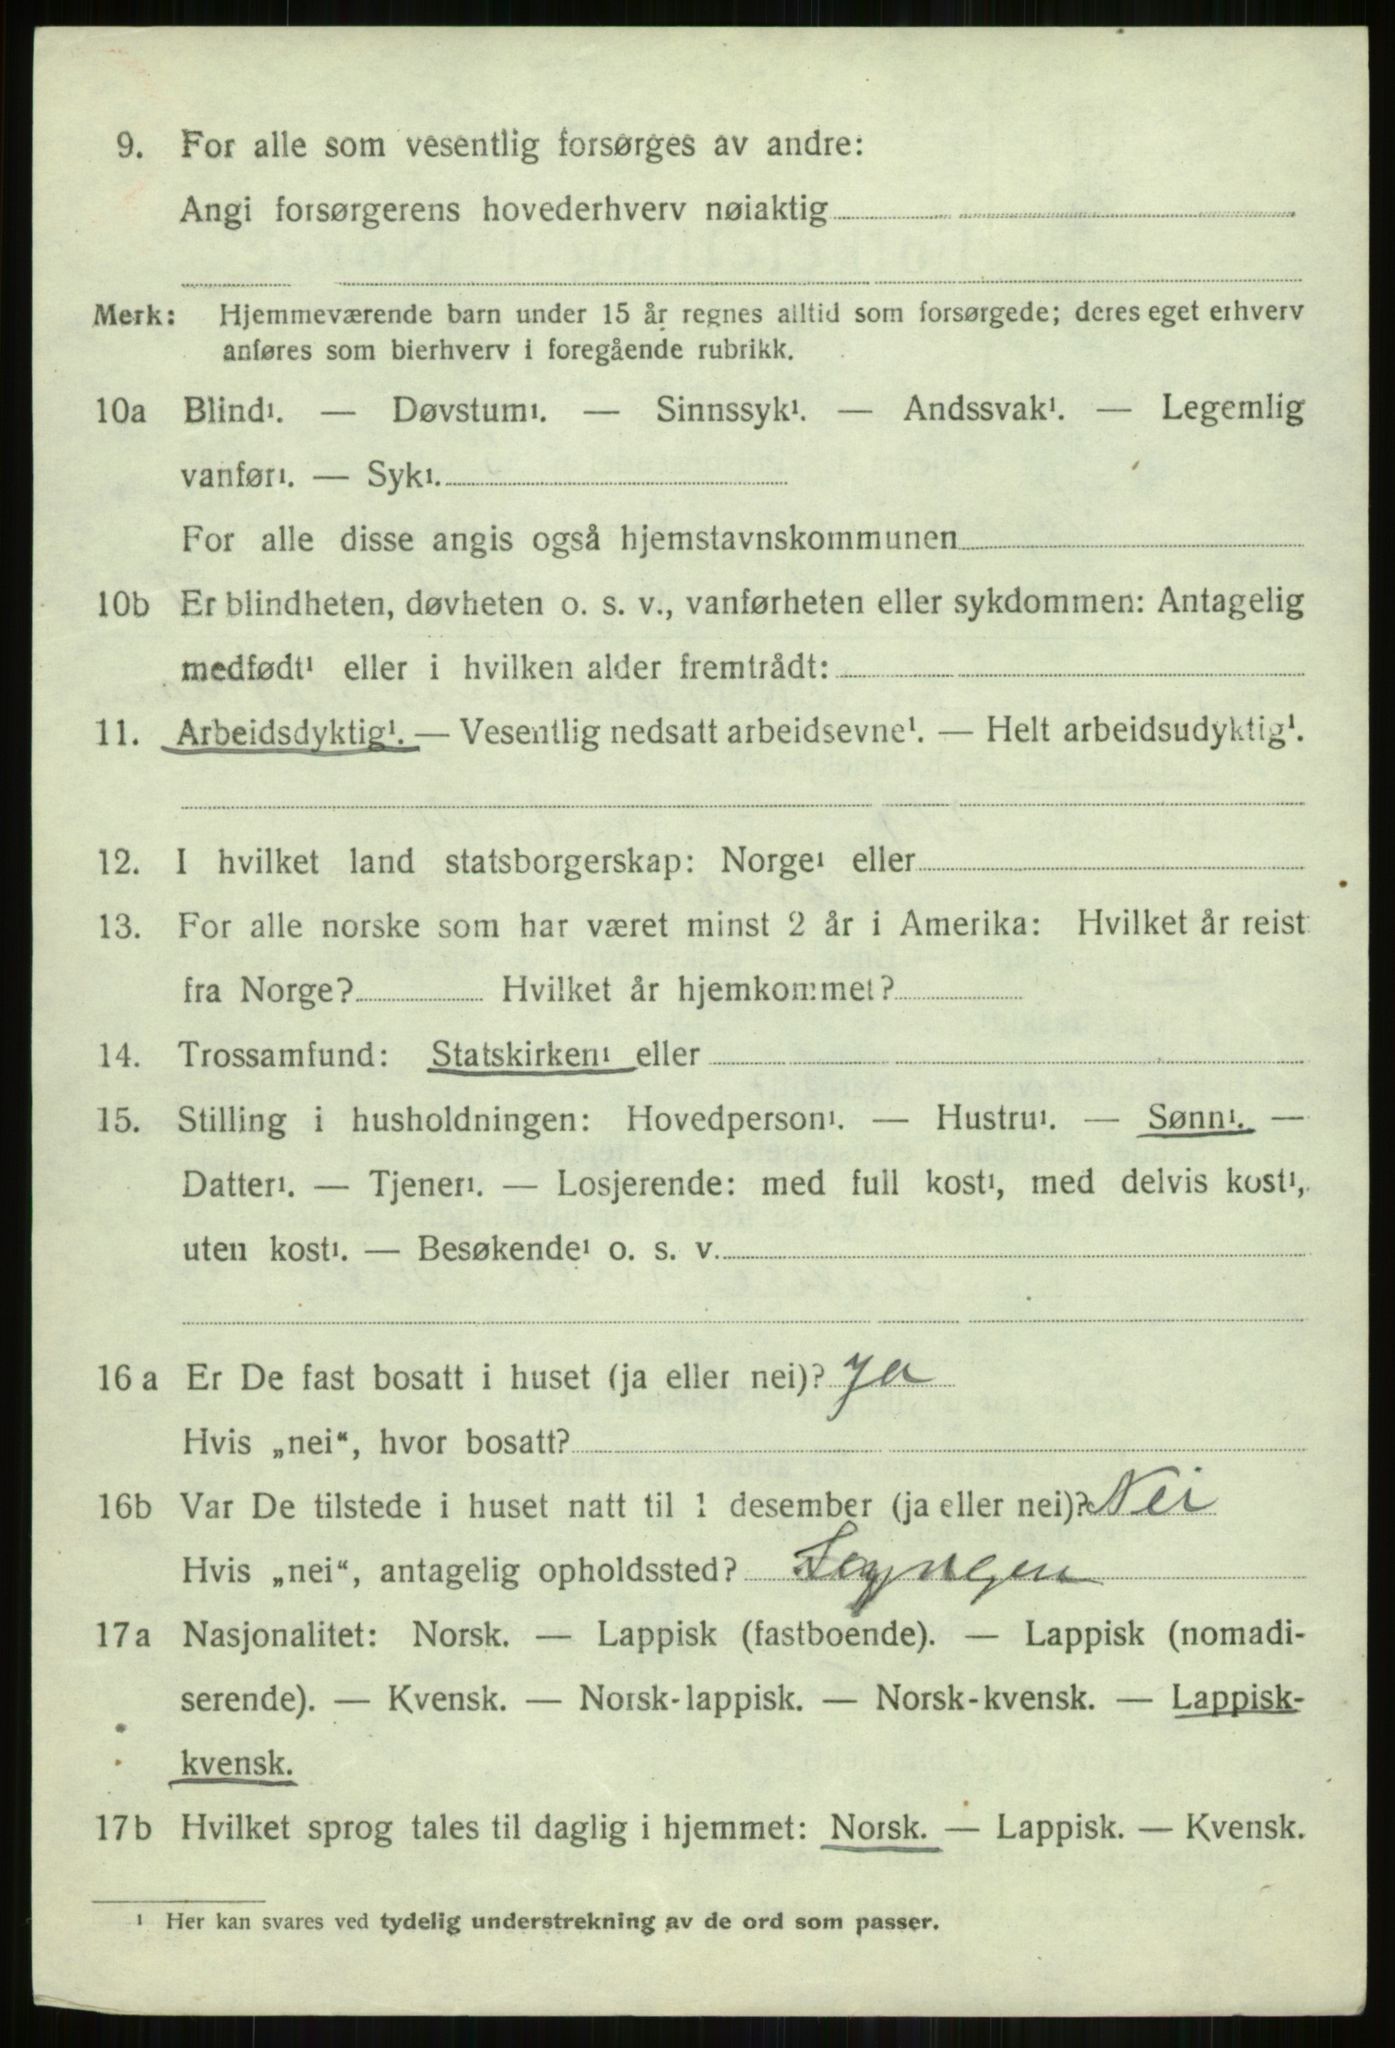 9. For alle som vesentlig forsørges av andre:
Angi forsørgerens hovederhverv nøiaktig
Merk: Hjemmeværende barn under 15 år regnes alltid som forsørgede; deres eget erhverv
anføres som bierhverv i foregående rubrikk.
10a Blind¹. — Døvstum¹. — Sinnssyk¹. — Andssvak¹. — Legemlig
vanfør¹. — Syk¹.
For alle disse angis også hjemstavnskommunen
10b Er blindheten, døvheten o. s. v., vanførheten eller sykdommen: Antagelig
medfødt¹ eller i hvilken alder fremtrådt:
11. Arbeidsdyktig¹. — Vesentlig nedsatt arbeidsevne¹. — Helt arbeidsudyktig¹.
12. I hvilket land statsborgerskap: Norge¹ eller
13. For alle norske som har været minst 2 år i Amerika: Hvilket år reist
fra Norge? Hvilket år hjemkommet?
14. Trossamfund: Statskirken¹ eller
15. Stilling i husholdningen: Hovedperson¹. — Hustru¹. — Sønn¹. —
Datter¹. — Tjener¹. — Losjerende: med full kost¹, med delvis kost¹,
uten kost¹. — Besøkende¹ o. s. v.
16 a Er De fast bosatt i huset (ja eller nei)? Ja
Hvis „nei“, hvor bosatt?
16b Var De tilstede i huset natt til 1 desember (ja eller nei)? Nei
Hvis „nei“, antagelig opholdssted? Lyngen
17a Nasjonalitet: Norsk. — Lappisk (fastboende). — Lappisk (nomadi-
serende). — Kvensk. — Norsk-lappisk. — Norsk-kvensk. — Lappisk-
kvensk.
17b Hvilket sprog tales til daglig i hjemmet: Norsk. — Lappisk. — Kvensk.
¹ Her kan svares ved tydelig understrekning av de ord som passer.